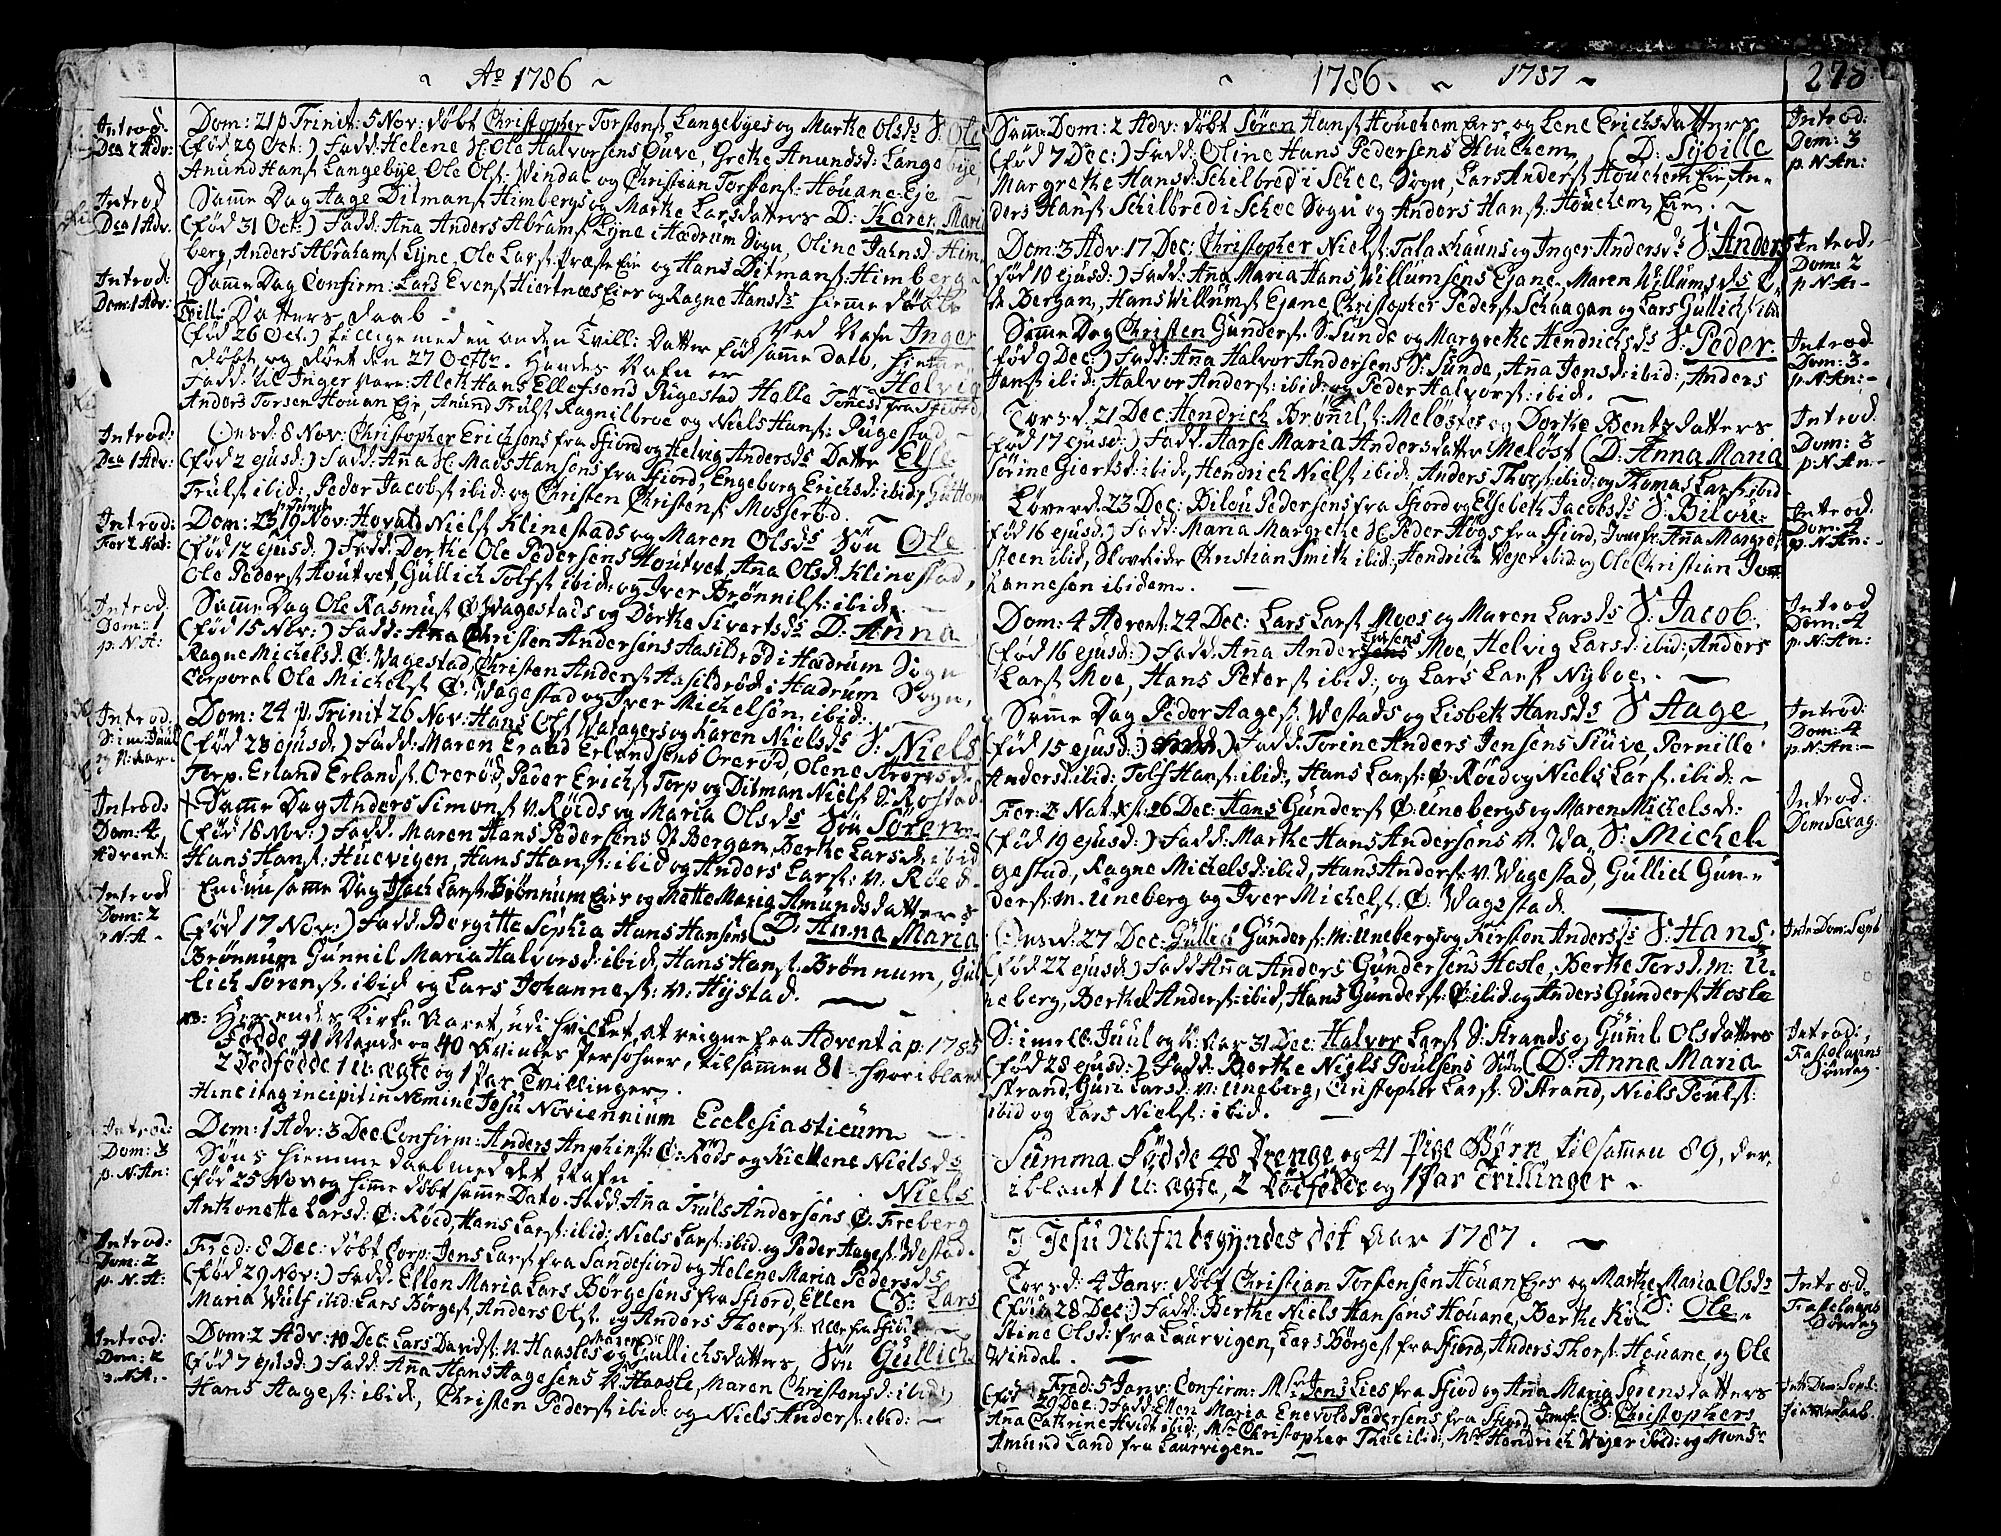 Ao 1786
Introd:
Dca 2 Adv:
Dom: 21 p Trinit: 5 Nov: døbt Christopher Torstens: Langebyes og Marthe Olsds S: Ole
(fød 29 Oct:) Fadd: Helene Hr Ole Halvorsens Ouve, Grethe Anundsd: Langebye,
Anund Hans: Langebye, Ole Ols: Windal og Christian Torstens: Houane-Eje
Introd
Dca 1 Adv.
Samme Dag Aage Ditmans: Himbergs og Marthe Larsdatters D: Karen Maria
(fød 31 Oct:) Fadd: Anna Anders Abrams: Ejne i Hædrum Sogn, Oline Jahnsd: Him-
berg, Anders Abrahams: Ejne, Ole Lars: Præste Eje og Hans Ditmans: Himberg
Introd:
Dom: 1 Adv:
Samme Dag Confirm: Lars Evens: Hiertnæs Eies og Ragne Hansds hiemme døbte
Tvill: Datters daab
(fød 26 Oct:) tillige med en anden Tvill: Datter fød samme dato, ved Nafn Inger
døbt og døet den 27 Octbr. Hendes Nafn er Helvig
Fadd: til Inger vare: Aleth Hans Ellefsens Rugestad Halle Tønesd fra Fiord,
Anders Torsen Houan Eje, Anund Truls: Ragnilbroe og Niels Hans: Rugestad
Introd:
Dca 1 Adv:
Onsd: 8 Nov: Christopher Erichsens fra Fiord og Helvig Andersds Datter Else
(fød 2 ejusd:) Fadd: Anna Hr Mads Hansens fra Fiord, Engeborg Erichsd: ibid; Guttorm
Truls: ibid:, Peder Jacobs: ibid: og Christen Christens: Mosserød
Introd:
For 2 Nat:
Dom: 23 p Trinit 19 Nov: Hovald Niels: Klinestads og Maren Olsds Søn Ole
(fød 12 ejusd:) Fadd: Dorthe Ole Pedersens Houtvet, Anna Olsd: Klinestad,
Ole Peders: Houtvet, Gullich Tolfs: ibid: og Iver Brønnils: ibid:
Introd:
Dom: 1
p: N: A:
Samme Dag Ole Rasmus: Ø: Wagestads og Dorthe Sivertsds D: Anna
(fød 15 Nov:) Fadd: Anna Christen Andersens Aasildrød i Hædrum Sogn
Ragne Michelsd: Ø: Wagestad, Christen Anders: Aasildrød i Hædrum Sogn,
Corporal Ole Michels: Ø: Wagestad og Iver Michelsøn ibid:
Introd:
S: im: Juul
og N: Aar:
Dom: 24 p: Trinit 26 Nov: Hans Ols: Watagers og Karen Nielsds S: Niels
(fød 23 ejusd:) Fadd: Maren Erland Erlandsens Orerød, Olene
Torp. Erland Erlands: Orerød, Peder Erichs: Torp og Ditman Niels: S: Rostad
Introd:
Dom: 4
Advent:
Samme Dag Anders Simons: v: Røds og Maria Olsds Søn Søren
(fød 18 Nov:) Fadd: Maren Hans Pedersens Ø: Bergan, Berthe Larsd: ibid
Hans Hans: Huevigen, Hans Hans: ibid og Anders Lars: v: Røed
Introd
Dom: 2
p: N: A
Endnu samme Dag Isach Lars: Brønnum Eies og Mette Maria Amundsdatters
(fød 17 Nov:) Fadd: Bergitte Sophia Hans Hansens (D: Anna Maria
Brønnum Gunnil Maria Halvorsd: ibid, Hans Hans: Brønnum, Gul-
lich Sørens: ibid og Lars Johannes: v: Hystad.
NB: Her endes Kirke Aaret, udi hvilket, at reigne fra Advent ao p: 1785
Fødde 41 Mands og 40 Qvindes Persohner, tilsammen 81 hvoriblant
2 Dødfødde 1 u: ægte og 1 Par Tvillinger.
Hinc itaq incipit in Nomine Jesu Noviennium Ecclesiasticum
Introd:
Dom: 3
p: N: An:
Dom: 1 Adv: 3 Dec: Confirm: Anders Anphins: Ø: Røds og Kiellene Nielsds
Søns hiemme daab med det Nafn
(fød 25 Nov og hiemme døbt samme Dato. Fadd: Anna Truls Andersens Ø: Freberg Niels
Anthonette Larsd: Ø: Røed, Hans Lars: ibid; Niels Lars: ibid: og Peder Aages: Westad
Introd:
Dom: 2
p. N. A:
Fred: 8 Dec: døbt Corp: Jens Lars: fra Sandefiord og Helene Maria Pedersds
(fød 29 Nov:) Fadd: Ellen Maria Lars Børgesens fra Fiord, Ellen (S: Lars
Maria Wulf ibid: Lars Børges:, Anders Ols: og Anders Thoers: alle fra Fiord
Introd:
Dom: 2
p. N. A:
Dom: 2 Adv: 10 Dec: Lars Davids: v: Haasles og Maren Gullichsdatters, Søn Gullich
(fød 7 ejusd:) Fadd: Anna Hans Hagesens v: Haasle, Maren Christensd: ibid;
Hans Aages: ibid, Christen Peders: ibid: og Niels Anders: ibid:
1786. 1787
278
Samme Dom: 2 Adv: døbt Søren Hans: Houchem Eies og Lene Erichsdatters
(fød 7 Dec:) Fadd: Oline Hans Pedersens Houchem (D: Sybille
Margrethe Hansd: Schilbred i Schee Sogn, Lars Anders: Houchem Eie, An-
ders Hans: Schilbred i Schee Sogn og Anders Hans: Houchem Eie.
Introd:
Dom: 3
p. N. An:
Dom: 3 Adv: 17 Dec: Christopher Niels: Talaxhauns og Inger Andersds S: Anders
(fød 10 ejusd:) Fadd: Anna Maria Hans Willumsens Ejane, Maren Willumsds
Bergan, Hans Willums: Ejane Christopher Peders: Schaagan og Lars Gullichs: ibid
Introd.
Dom: 2
p N: An
Samme Dag Christen Gunders: S: Sunde og Margrethe Hendrichsds S: Peder
(fød 9 Dec:) Fadd: Anna Halvor Andersens S: Sunde, Anna Jensd: ibid:, Anders
Hans: ibid: Halvor Anders: ibid: og Peder Halvors: ibid.
Introd
Dom: 3
p. N. An:
Torsd. 21 Dec: Hendrich Brønnils: Meløstes og Dorthe Bentsdatters
(fød 17 ejusd:) Fadd: Aarse Maria Andersdatter Meløst (D: Anna Maria
Sørine Giertsd: ibid, Hendrich Niels: ibid: Anders Thors: ibid: og Thomas Lars: ibid
Introd:
Dom: 3
p: N: An
Løverd. 23 Dec: Bilou Pedersens fra Fiord og Elsebeth Jacobsds S: Biloue
(fød 16 ejusd:) Fadd: Maria Margrethe Hr Peder Høgs fra Fiord, Jomfr: Anna Margre:
Steen ibid, Slovrider Christian Smith ibid:, Hendrich Wejer ibid og Ole Christian Jo-
hannesøn ibidem.
Introd.
Dom: 4
p: N: An:
Dom: 4 Advent: 24 Dec: Lars Lars: Moes og Maren Larsds S: Jacob
(fød 16 ejusd:) Fadd: Anna Anders Larsens Moe, Helvig Larsd: ibid: Anders
Lars: Moe, Hans Peters: ibid:, og Lars Lars: Nyboe.
Introd
Dom: 4
p: N: An:
Samme Dag Peder Aages: Westads og Lisbeth Hansds S: Aage
(fød 15 ejusd:) Fadd: Torine Anders Jensens Stuve, Pernille
Andersd: ibid: Tolf Hans: ibid:, Hans Lars: Ø: Røed og Niels Lars: ibid:
Introd:
Dom: 4
p: N: An:
Fer: 2 Nat. Xsti: 26 Dec: Hans Gunders: Ø: Unebergs og Maren Michelsd:
(fød 19 ejusd:) Fadd: Marthe Hans Andersens v. Wa S: Michel
gestad, Ragne Michelsd: ibid, Hans Anders: v. Wagestad, Gullich Gun-
ders: m. Uneberg og Iver Michels: Ø: Wagestad.
Introd:
Dom Sexag:
Onsd: 27 Dec: Gullich Gunders: M: Unebergs og Kirsten Andersds S: Hans
(fød 22 ejusd:) Fadd: Anna Anders Gundersens Hosle, Berthe Torsd. m: U-
neberg, Berthel Anders: ibid, Hans Gunders: Ø: ibid: og Anders Gunders: Hosle
Intr: Dom: Sept
S: imell: Juul og N: Aar 31 Dec: Halvor Lars: S: Strands og Gunnil Olsdatters
(fød 28 ejusd:) Fadd: Berthe Niels Poulsens Søn: (D: Anna Maria
Strand, Guri Larsd: v: Uneberg, Christopher Lars: S: Strand, Niels Pouls:
ibid og Lars Niels: ibid.
Introd:
Fastelavns
Søndag.
Summa Fødde 48 Drenge og 41 Pige Børn, tilsammen 89, der-
iblant 1 u: ægte, 2 Dødfødde og 1 Par Tvillinger.
I Jesu Nafn begyndes det Aar 1787.
Torsd: 4 Janv: døbt Christian Torstensen Houan Eies og Marthe Maria Olsds
(fød 28 Dec:) Fadd: Berthe Niels Hansens Houane, Berthe Ki S: Ole
stine Olsd: fra Laurvigen, Lars Børges: fra Fiord, Anders Thors: Houane, og Ole
Windal.
Introd.
Fastelavns
Søndag
Fred: 5 Janv: Confirm: Mr Jens Lies fra Fiord og Anna Maria Sørensdatters
(fød 29 Dec:) Fadd: Ellen Maria Enevold Pedersens fra Fiord, Jomfr: (S: Christophers
Anna Cathrine Hvidt ibid:, Mr Christopher Thue ibid:, Mr Hendrich Wejer ibid: og Mons:r
Amund Land fra Laurvigen.
Intr: Dom: Sept:
hiemedaab.